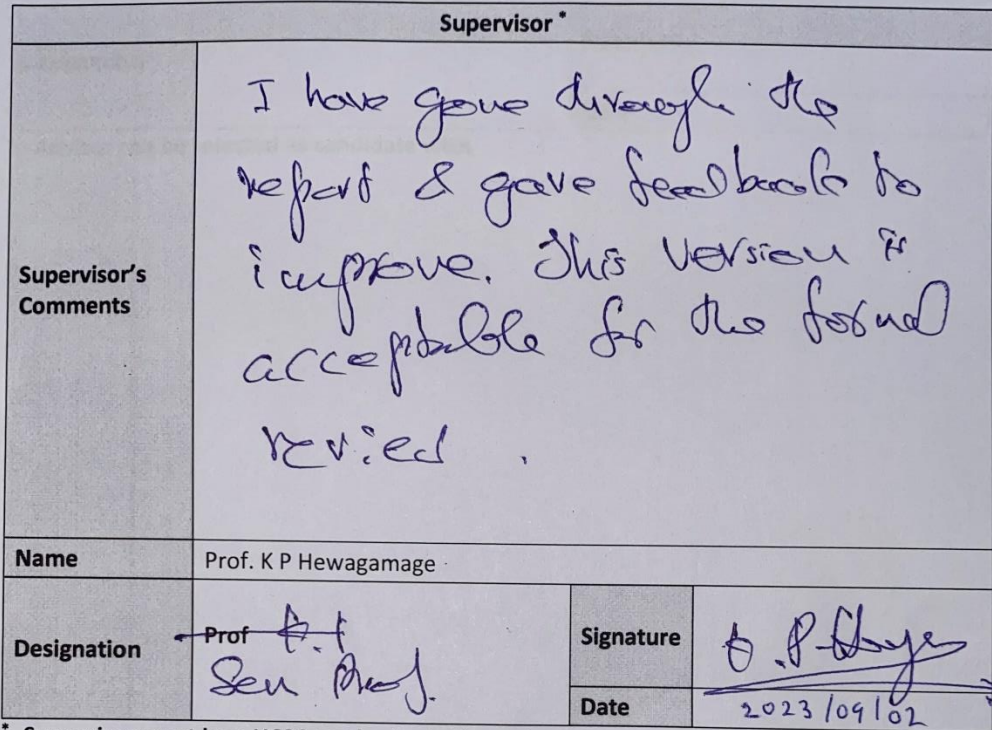 Supervisor *
Supervisor's Comments
I have gone through the
report & gave feedback to
improve. This version is
acceptable for the formal
review.
Name
Prof. K P Hewagamage
Designation
Prof
Sen Prof.
Signature
Date
2023/09/02